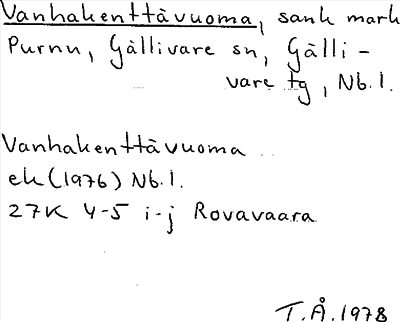 Vanhakenttävuoma, sank mark
Purnu, Gällivare sn, Gälli-
vare tg, Nb.l.
Vanhakenttävuoma
ek (1976) Nb.l.
27K 4-5 i-j Rovavaara
T.Å. 1978